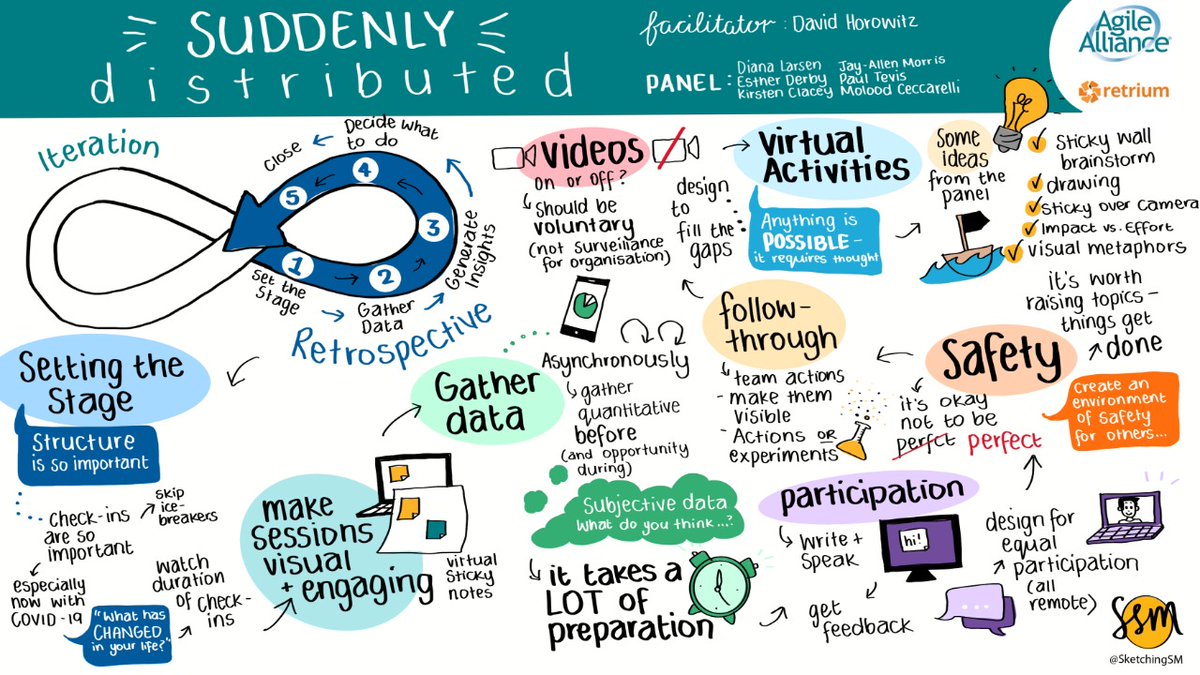 SUDDENLY
distributed
facilitator : David Horowitz
PANEL :
Diana Larsen Jay-Allen Morris
Esther Derby Paul Tevis
Kirsten Clacey Molood Ceccarelli
Agile
Alliance
retrium
Iteration
Decide what
to do
Close
5
4
3
1
2
Set the
Stage
Gather
Data
Generate
Insights
Retrospective
Setting the
Stage
Structure
is so important
Check-ins
are so
important
skip
ice-
breakers
especially
now with
COVID-19
"What has
CHANGED
in your life?"
watch
duration
of check-
ins
make
sessions
visual
+ engaging
virtual
sticky
notes
Gather
data
Asynchronously
gather
quantitative
before
(and opportunity
during)
Subjective data
What do you think...?
it takes a
LOT of
preparation
Videos
on or off?
should be
voluntary
(not surveillance
for organisation)
design
to
fill the
gaps
Virtual
Activities
Anything is
POSSIBLE -
it requires thought
Some
ideas
from the
panel
Sticky wall
brainstorm
drawing
Sticky over camera
Impact vs. Effort
visual metaphors
follow-
through
- team actions
- make them
visible
- Actions OR
experiments
Safety
it's okay
not to be
perfct perfect
it's worth
raising topics -
things get
done
Create an
environment
of safety
for others...
participation
write +
speak
hi!
get
feedback
design for
equal
participation
(all
remote)
SSM
@SketchingSM